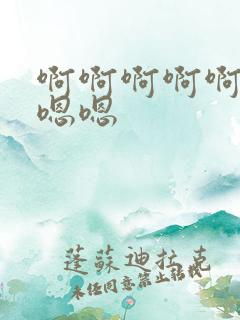 啊啊啊啊啊
嗯嗯
蓬蘇迪拉克
未经同意禁止转载